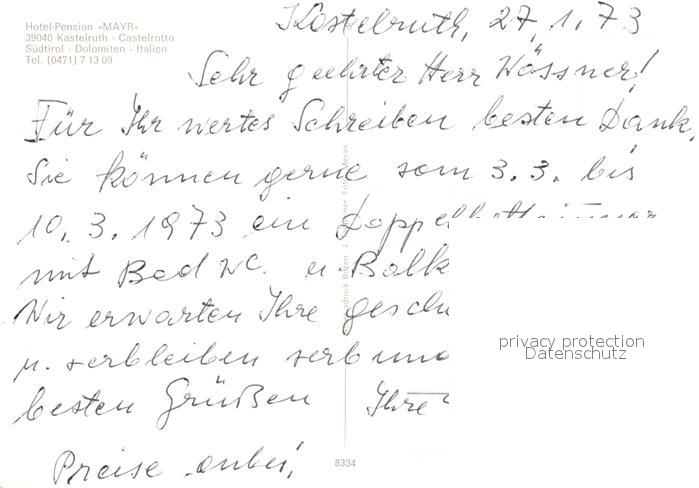 Hotel-Pension »MAYR«
39040 Kastelruth - Castelrotto
Südtirol - Dolomiten - Italien
Tel. (0471) 7 13 09
Kastelruth, 27.1.73
Sehr geehrter Herr Wässner!
Für Ihr wertes Schreiben besten Dank,
Sie können gerne vom 3.3. bis
10.3.1973 ein Doppelbettzimmer
mit Bad WC. u. Balk
Wir erwarten Ihre
u. verbleiben
besten Grüßen Ihre
Preise anbei,
privacy protection
Datenschutz
8334